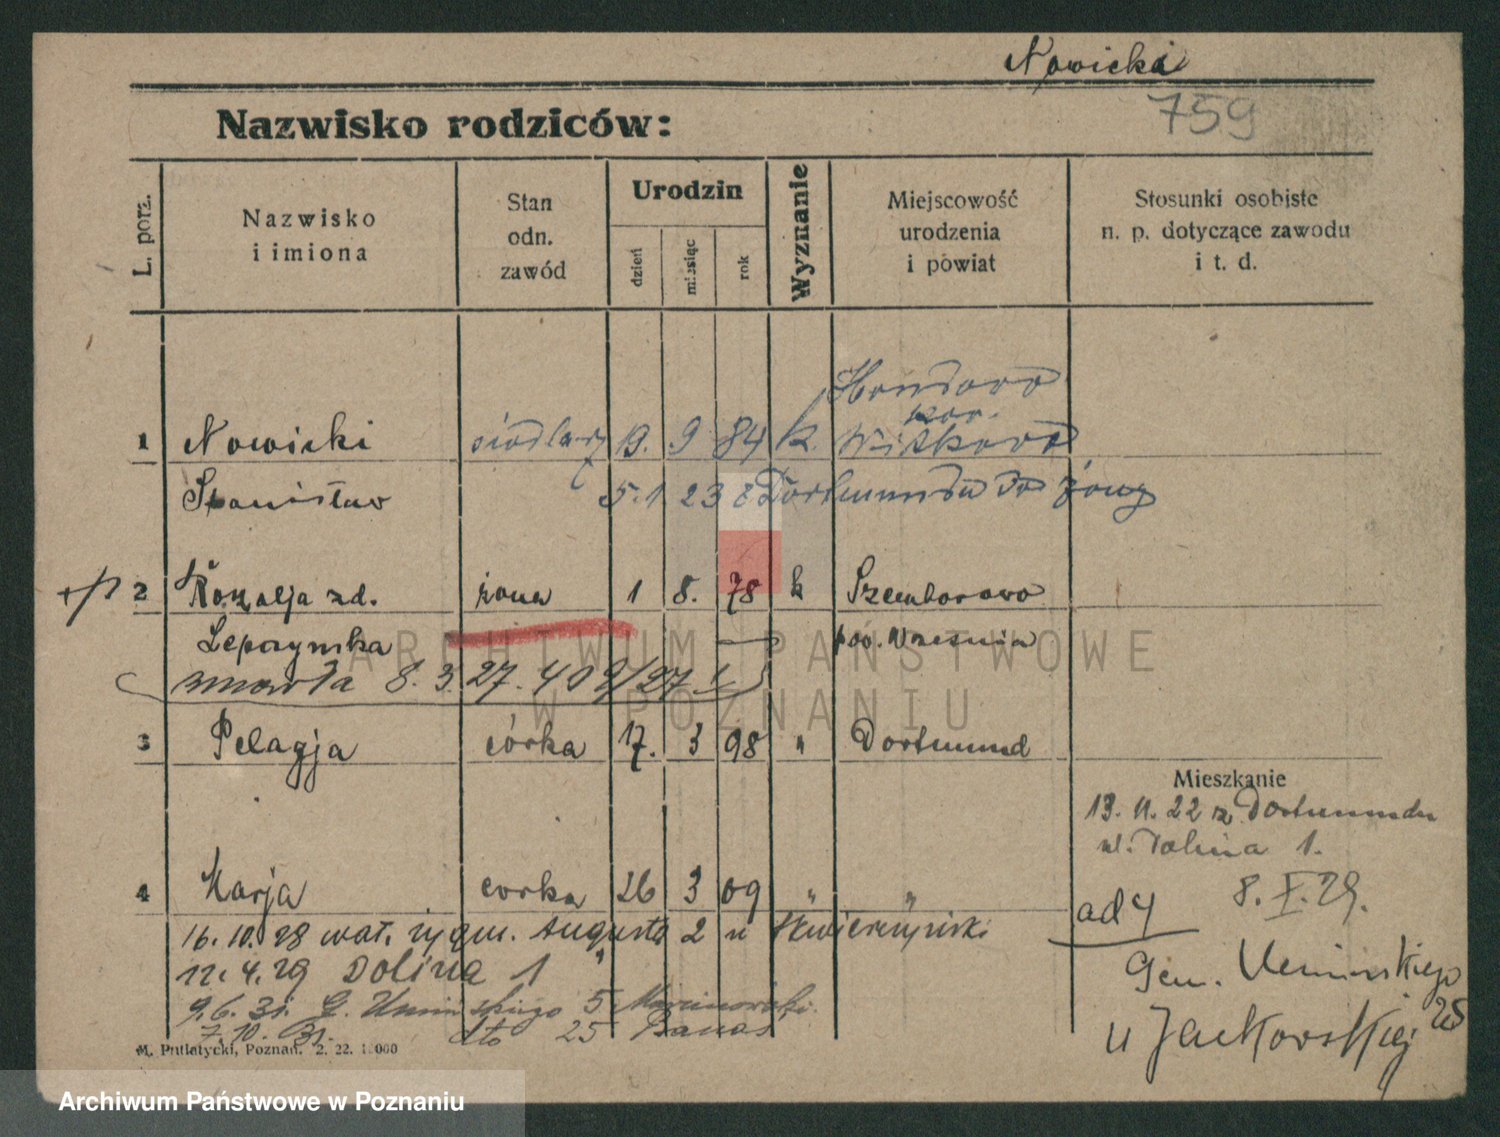 Nowicki
759
Nazwisko rodziców:
L. porz.
Nazwisko
i imiona
Stan
odn.
zawód
Urodzin
dzień
miesiąc
rok
Wyznanie
Miejscowość
urodzenia
i powiat
Stosunki osobiste
n. p. dotyczące zawodu
i t. d.
pow.
1 Nowicki siodlarz 19. 9 84 k. Witkowo
Stanisław 5.1 23 z Dortmundu do żony
2 Rozalja zd. żona 1 8. 78 k Szemborowo
Lepczynska pow. Września
zmarła 8. 3. 27. 409/27
3 Pelagja córka 17. 3 98 " Dortmund
Mieszkanie
13. 11. 22 z Dortmundu
ul. Dolina 1.
4 Marja corka 26 3 09 " "
8. X. 29.
ad 4
16. 10. 28 wał. Zygm. Augusta 2 u Skwierzyński
Gen. Uminskiego
12. 4. 29 Dolina 1
25
9. 6. 31. G. Uminskiego 5 Marcinowski.
7. 10. 31. dto 25 Banas
u Jackowskiej
M. Putiatycki, Poznań. 2. 22. 10000
ARCHIWUM PAŃSTWOWE
W POZNANIU
Archiwum Państwowe w Poznaniu